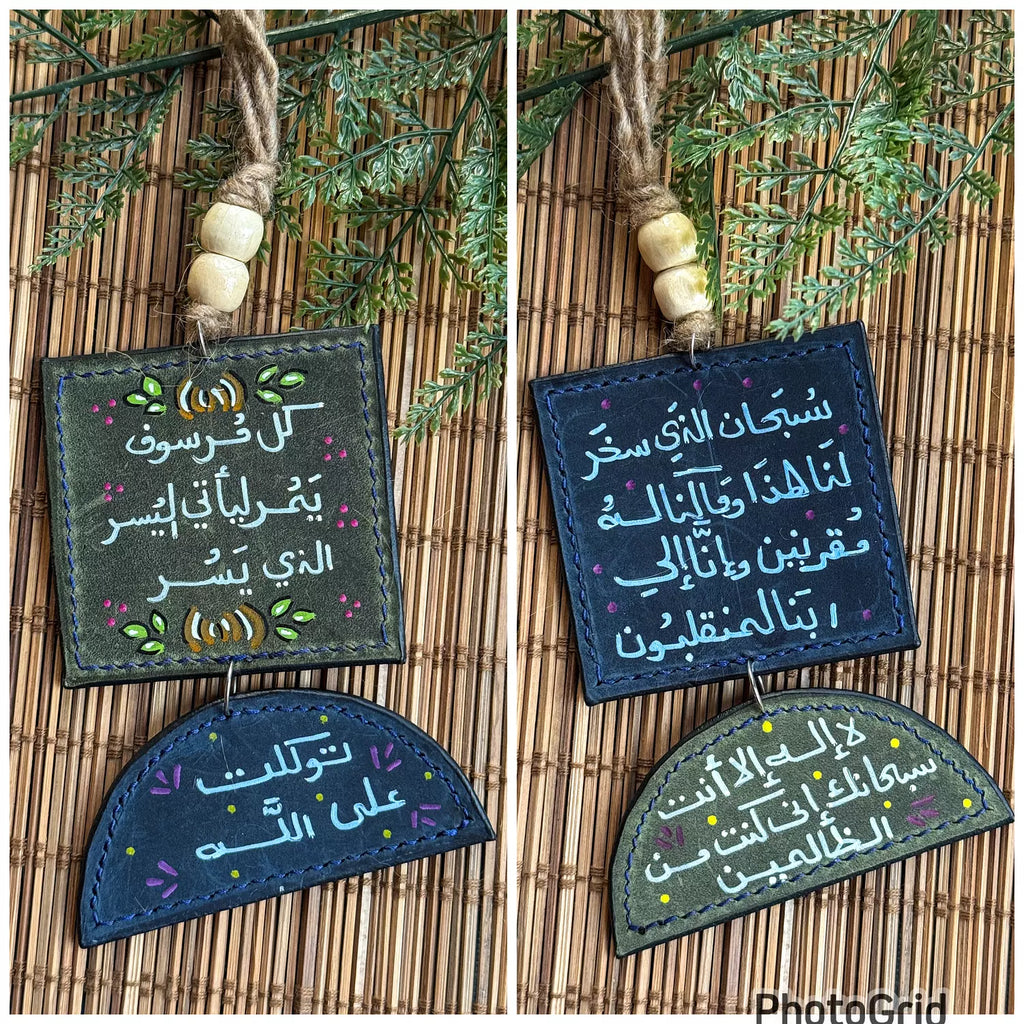 كل مُرسوف
يَمُر ليأتي اليُسر
الذي يَسُر
توكلت
على اللَّه
سُبحَان الذي سخَر
لنَا هٰذَا وَمَا كُنا لهُ
مُقرنين وإنَّا إلي
ا بَنا لمنقلبُون
لا إله إلا أنت
سبحانك إني كنت من
الظالمين
PhotoGrid